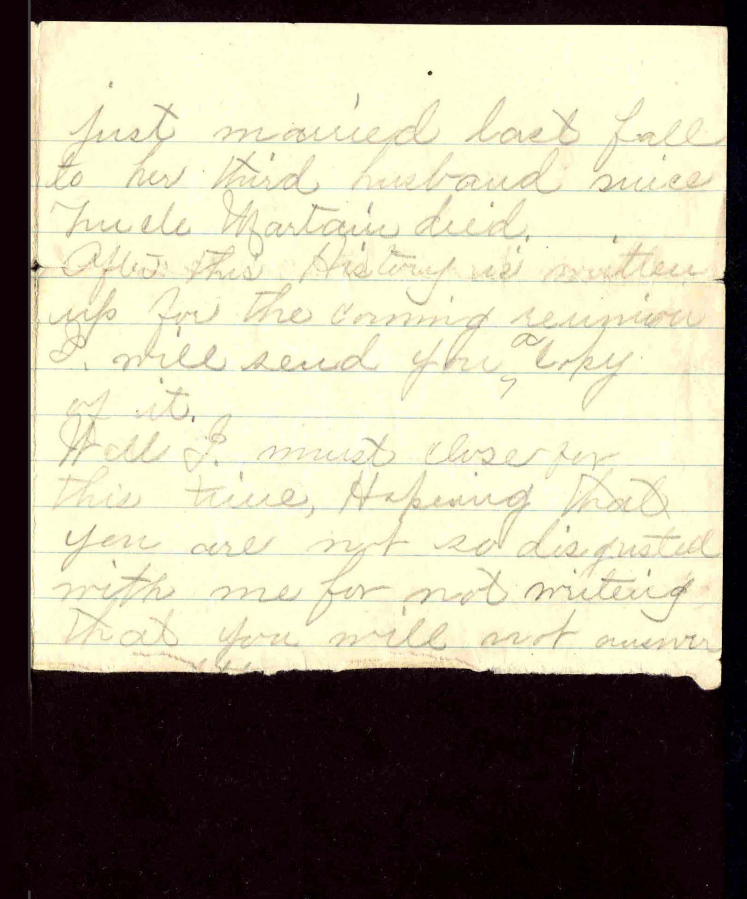 just married last fall
to her third husband since
Uncle Martain died.
After this History is written
up for the coming reunion
I. will send you, a Copy
of it.
Well I. must close for
this time, Hopeing that
you are not so disgusted
with me for not writeing
that you will not answer